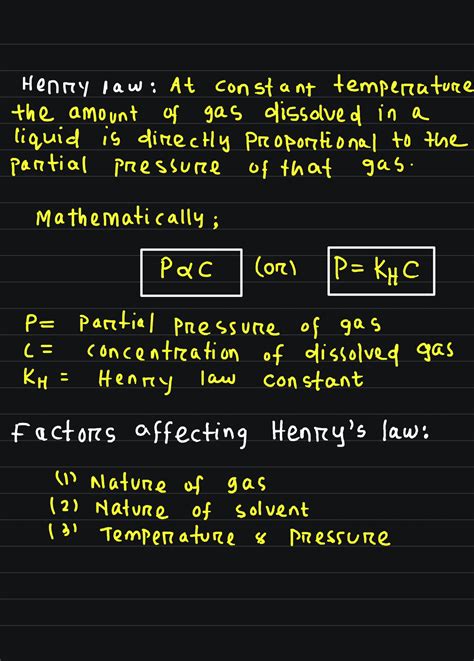 Henry law: At constant temperature
the amount of gas dissolved in a
liquid is directly proportional to the
partial pressure of that gas.
Mathematically;
P∝C (or) P= K_H C
P= Partial pressure of gas
C= concentration of dissolved gas
K_H = Henry law constant
Factors affecting Henry's law:
(1) Nature of gas
(2) Nature of solvent
(3) Temperature & pressure